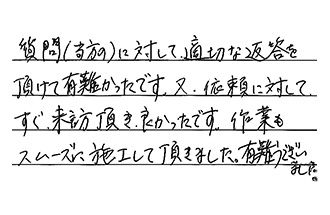 質問(当方の)に対して、適切な返答を
頂けて有難かったです。又、依頼に対して、
すぐ、来訪頂き、良かったです。作業も
スムーズに施工して頂きました。有難うござい
ました。